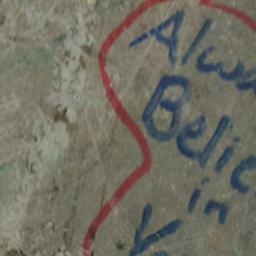 Alwa
Belie
in
Yo